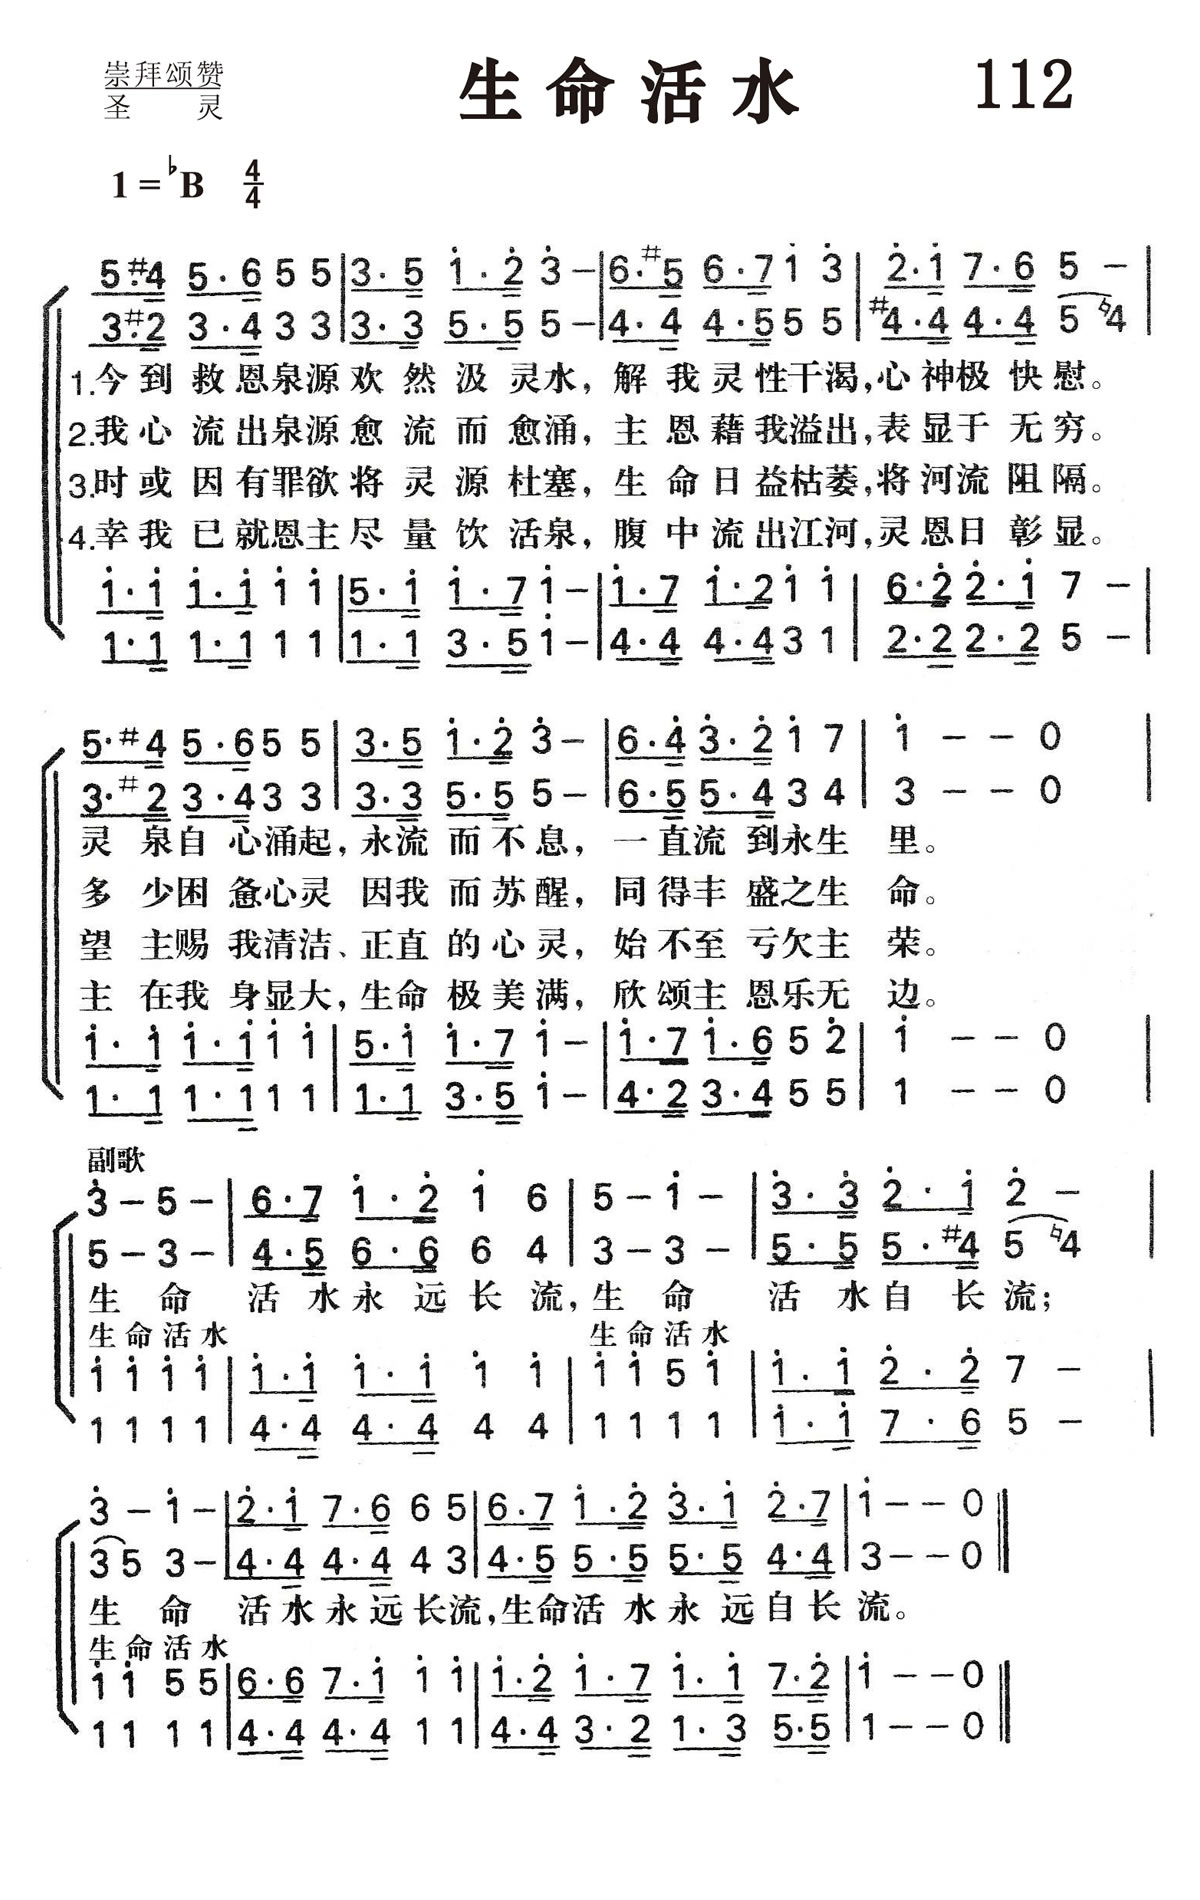 崇拜颂赞
圣 灵
生命活水
112
1=♭B 4/4
5·#4 5·6 5 5|3·5 1̇·2̇ 3̇ –|6·#5 6·7 1̇ 3̇|2̇·1̇ 7·6 5 –|
3·#2 3·4 3 3|3·3 5·5 5 –|4·4 4·5 5 5|#4·4 4·4 5 ♮4|
1.今到救恩泉源欢然汲灵水，解我灵性干渴，心神极快慰。
2.我心流出泉源愈流而愈涌，主恩藉我溢出，表显于无穷。
3.时或因有罪欲将灵源杜塞，生命日益枯萎，将河流阻隔。
4.幸我已就恩主尽量饮活泉，腹中流出江河，灵恩日彰显。
1̇·1̇ 1̇·1̇ 1̇ 1̇|5·1̇ 1̇·7 1̇ –|1̇·7 1̇·2̇ 1̇ 1̇|6·2̇ 2̇·1̇ 7 –|
1·1 1·1 1 1|1·1 3·5 1̇ –|4·4 4·4 3 1|2·2 2·2 5 –|
5·#4 5·6 5 5|3·5 1̇·2̇ 3̇ –|6·4̇ 3̇·2̇ 1̇ 7|1̇ – – 0|
3·#2 3·4 3 3|3·3 5·5 5 –|6·5 5·4 3 4|3 – – 0|
灵泉自心涌起，永流而不息，一直流到永生里。
多少困惫心灵因我而苏醒，同得丰盛之生命。
望主赐我清洁、正直的心灵，始不至亏欠主荣。
主在我身显大，生命极美满，欣颂主恩乐无边。
1̇·1̇ 1̇·1̇ 1̇ 1̇|5·1̇ 1̇·7 1̇ –|1̇·7 1̇·6 5 2̇|1̇ – – 0|
1·1 1·1 1 1|1·1 3·5 1̇ –|4·2 3·4 5 5|1 – – 0|
副歌
3̇ – 5 –|6·7 1̇·2̇ 1̇ 6|5 – 1̇ –|3̇·3̇ 2̇·1̇ 2̇ –|
5 – 3 –|4·5 6·6 6 4|3 – 3 –|5·5 5·#4 5 ♮4|
生命活水永远长流，生命活水自长流；
生命活水 生命活水
1̇ 1̇ 1̇ 1̇|1̇·1̇ 1̇·1̇ 1̇ 1̇|1̇ 1̇ 5 1̇|1̇·1̇ 2̇·2̇ 7 –|
1 1 1 1|4·4 4·4 4 4|1 1 1 1|1̇·1̇ 7·6 5 –|
3̇ – 1̇ –|2̇·1̇ 7·6 6 5|6·7 1̇·2̇ 3̇·1̇ 2̇·7|1̇ – – 0‖
3 5 3 –|4·4 4·4 4 3|4·5 5·5 5·5 4·4|3 – – 0‖
生命活水永远长流，生命活水永远自长流。
生命活水
1̇ 1̇ 5 5|6·6 7·1̇ 1̇ 1̇|1̇·2̇ 1̇·7 1̇·1̇ 7·2̇|1̇ – – 0‖
1 1 1 1|4·4 4·4 1 1|4·4 3·2 1·3 5·5|1 – – 0‖